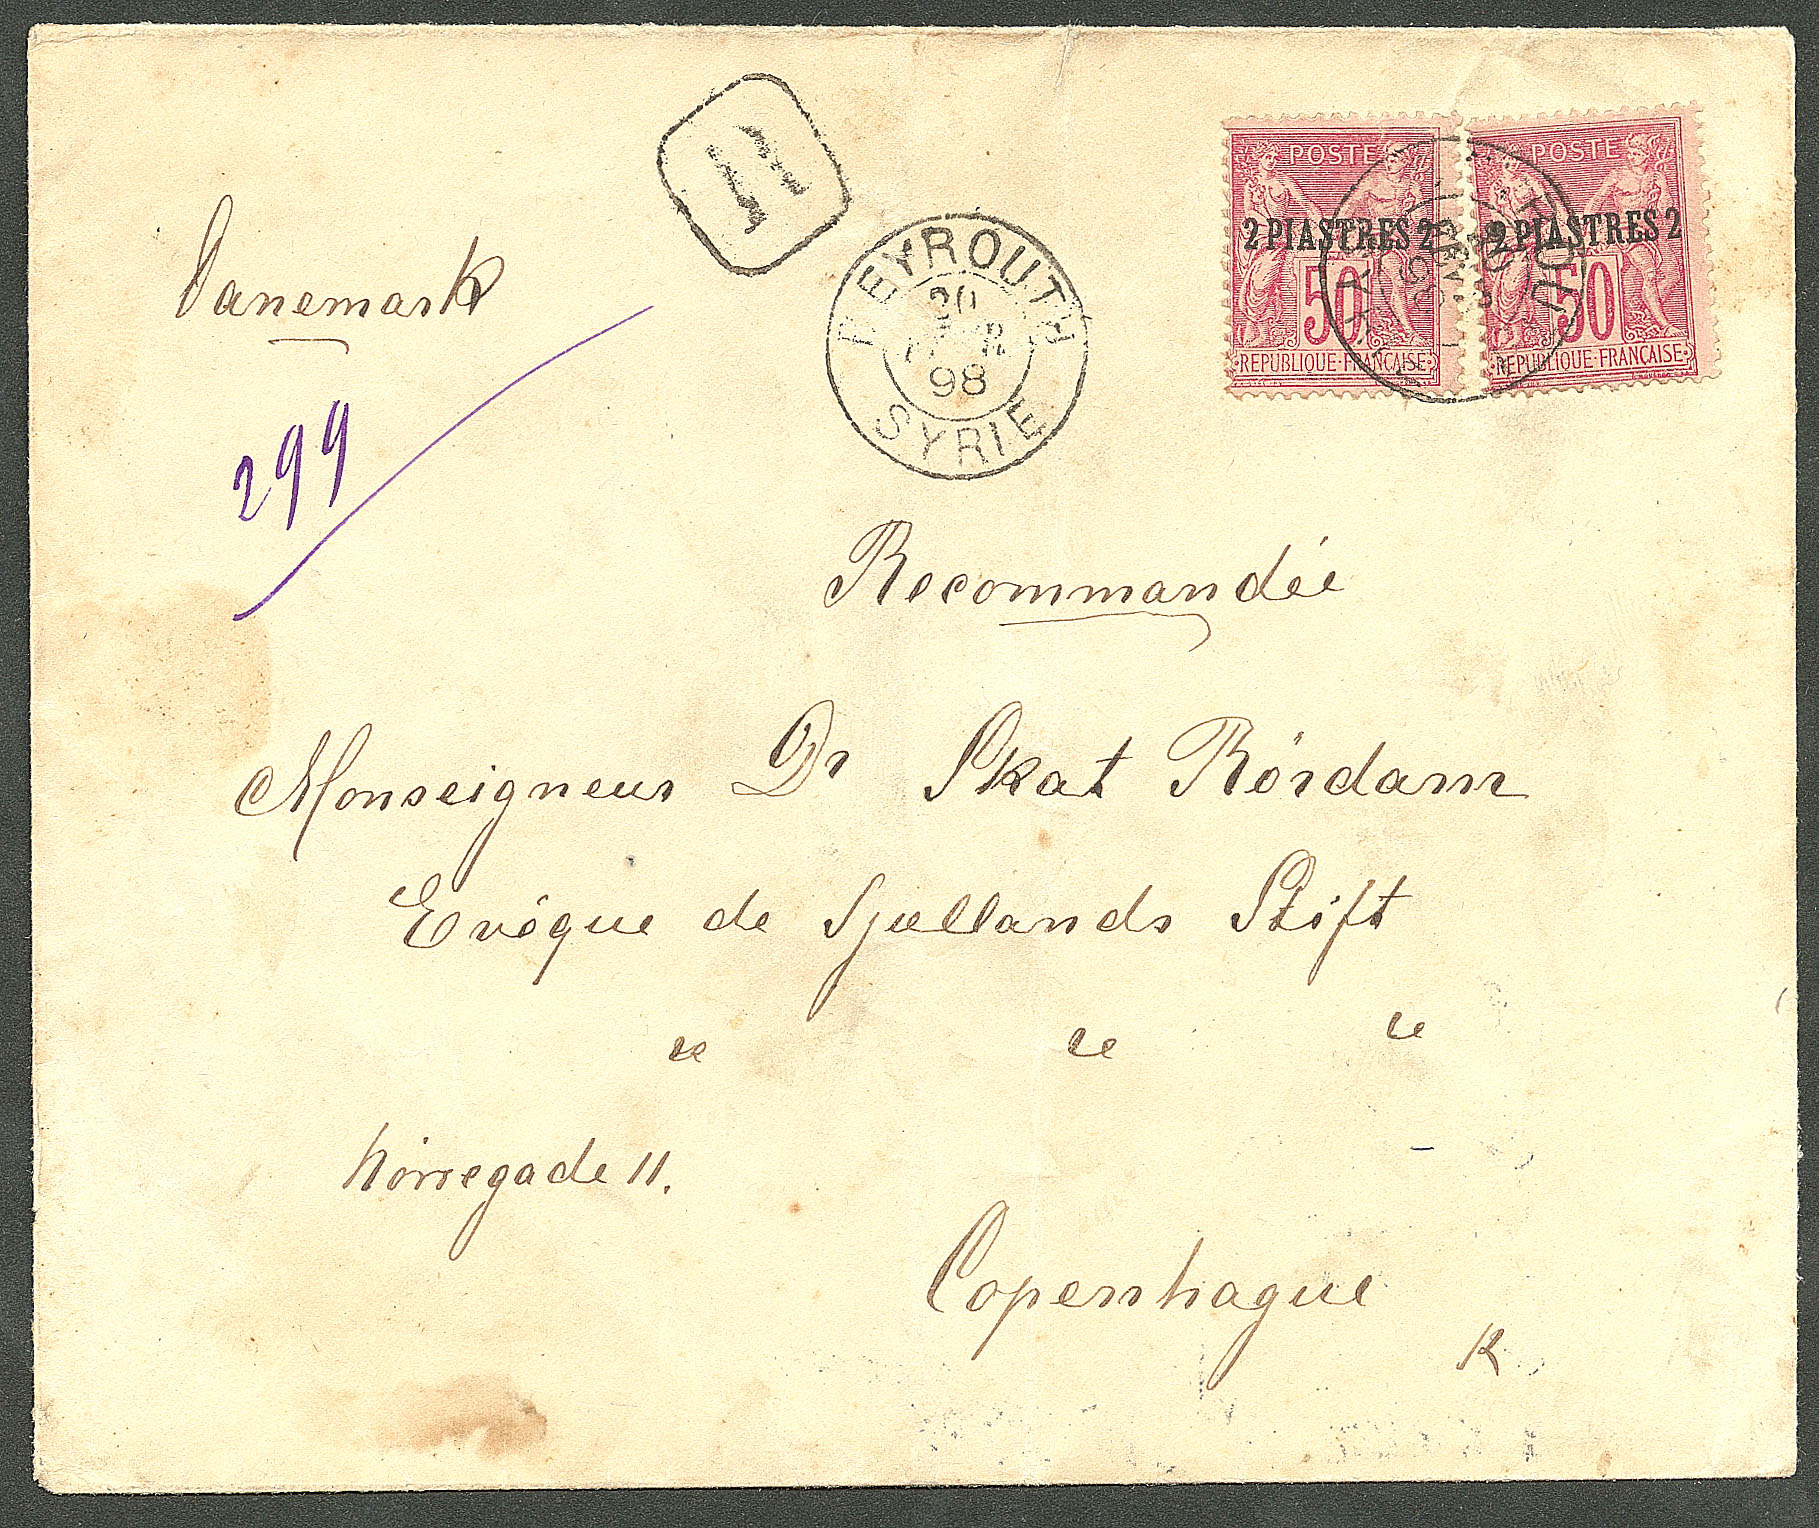 R
POSTE
2 PIASTRES 2
50
REPUBLIQUE FRANÇAISE
POSTE
2 PIASTRES 2
50
REPUBLIQUE FRANÇAISE
Danemark
BEYROUTH
20
FEVR
98
SYRIE
299
Recommandée
Monseigneur Dr Skat Rördam
Evêque de Sjællands Stift
" " "
Nörregade 11.
Copenhague
K